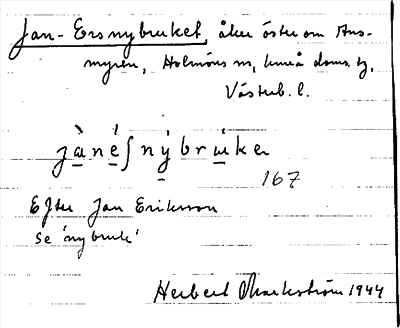 Jan-Ersnybruket, åker öster om Ans-
myren, Holmöns sn, Umeå doms. tg,
Västerb. l.
jànéʃnýbrúker
167
Efter Jan Eriksson
se 'nybruk'
Herbert Markström 1944